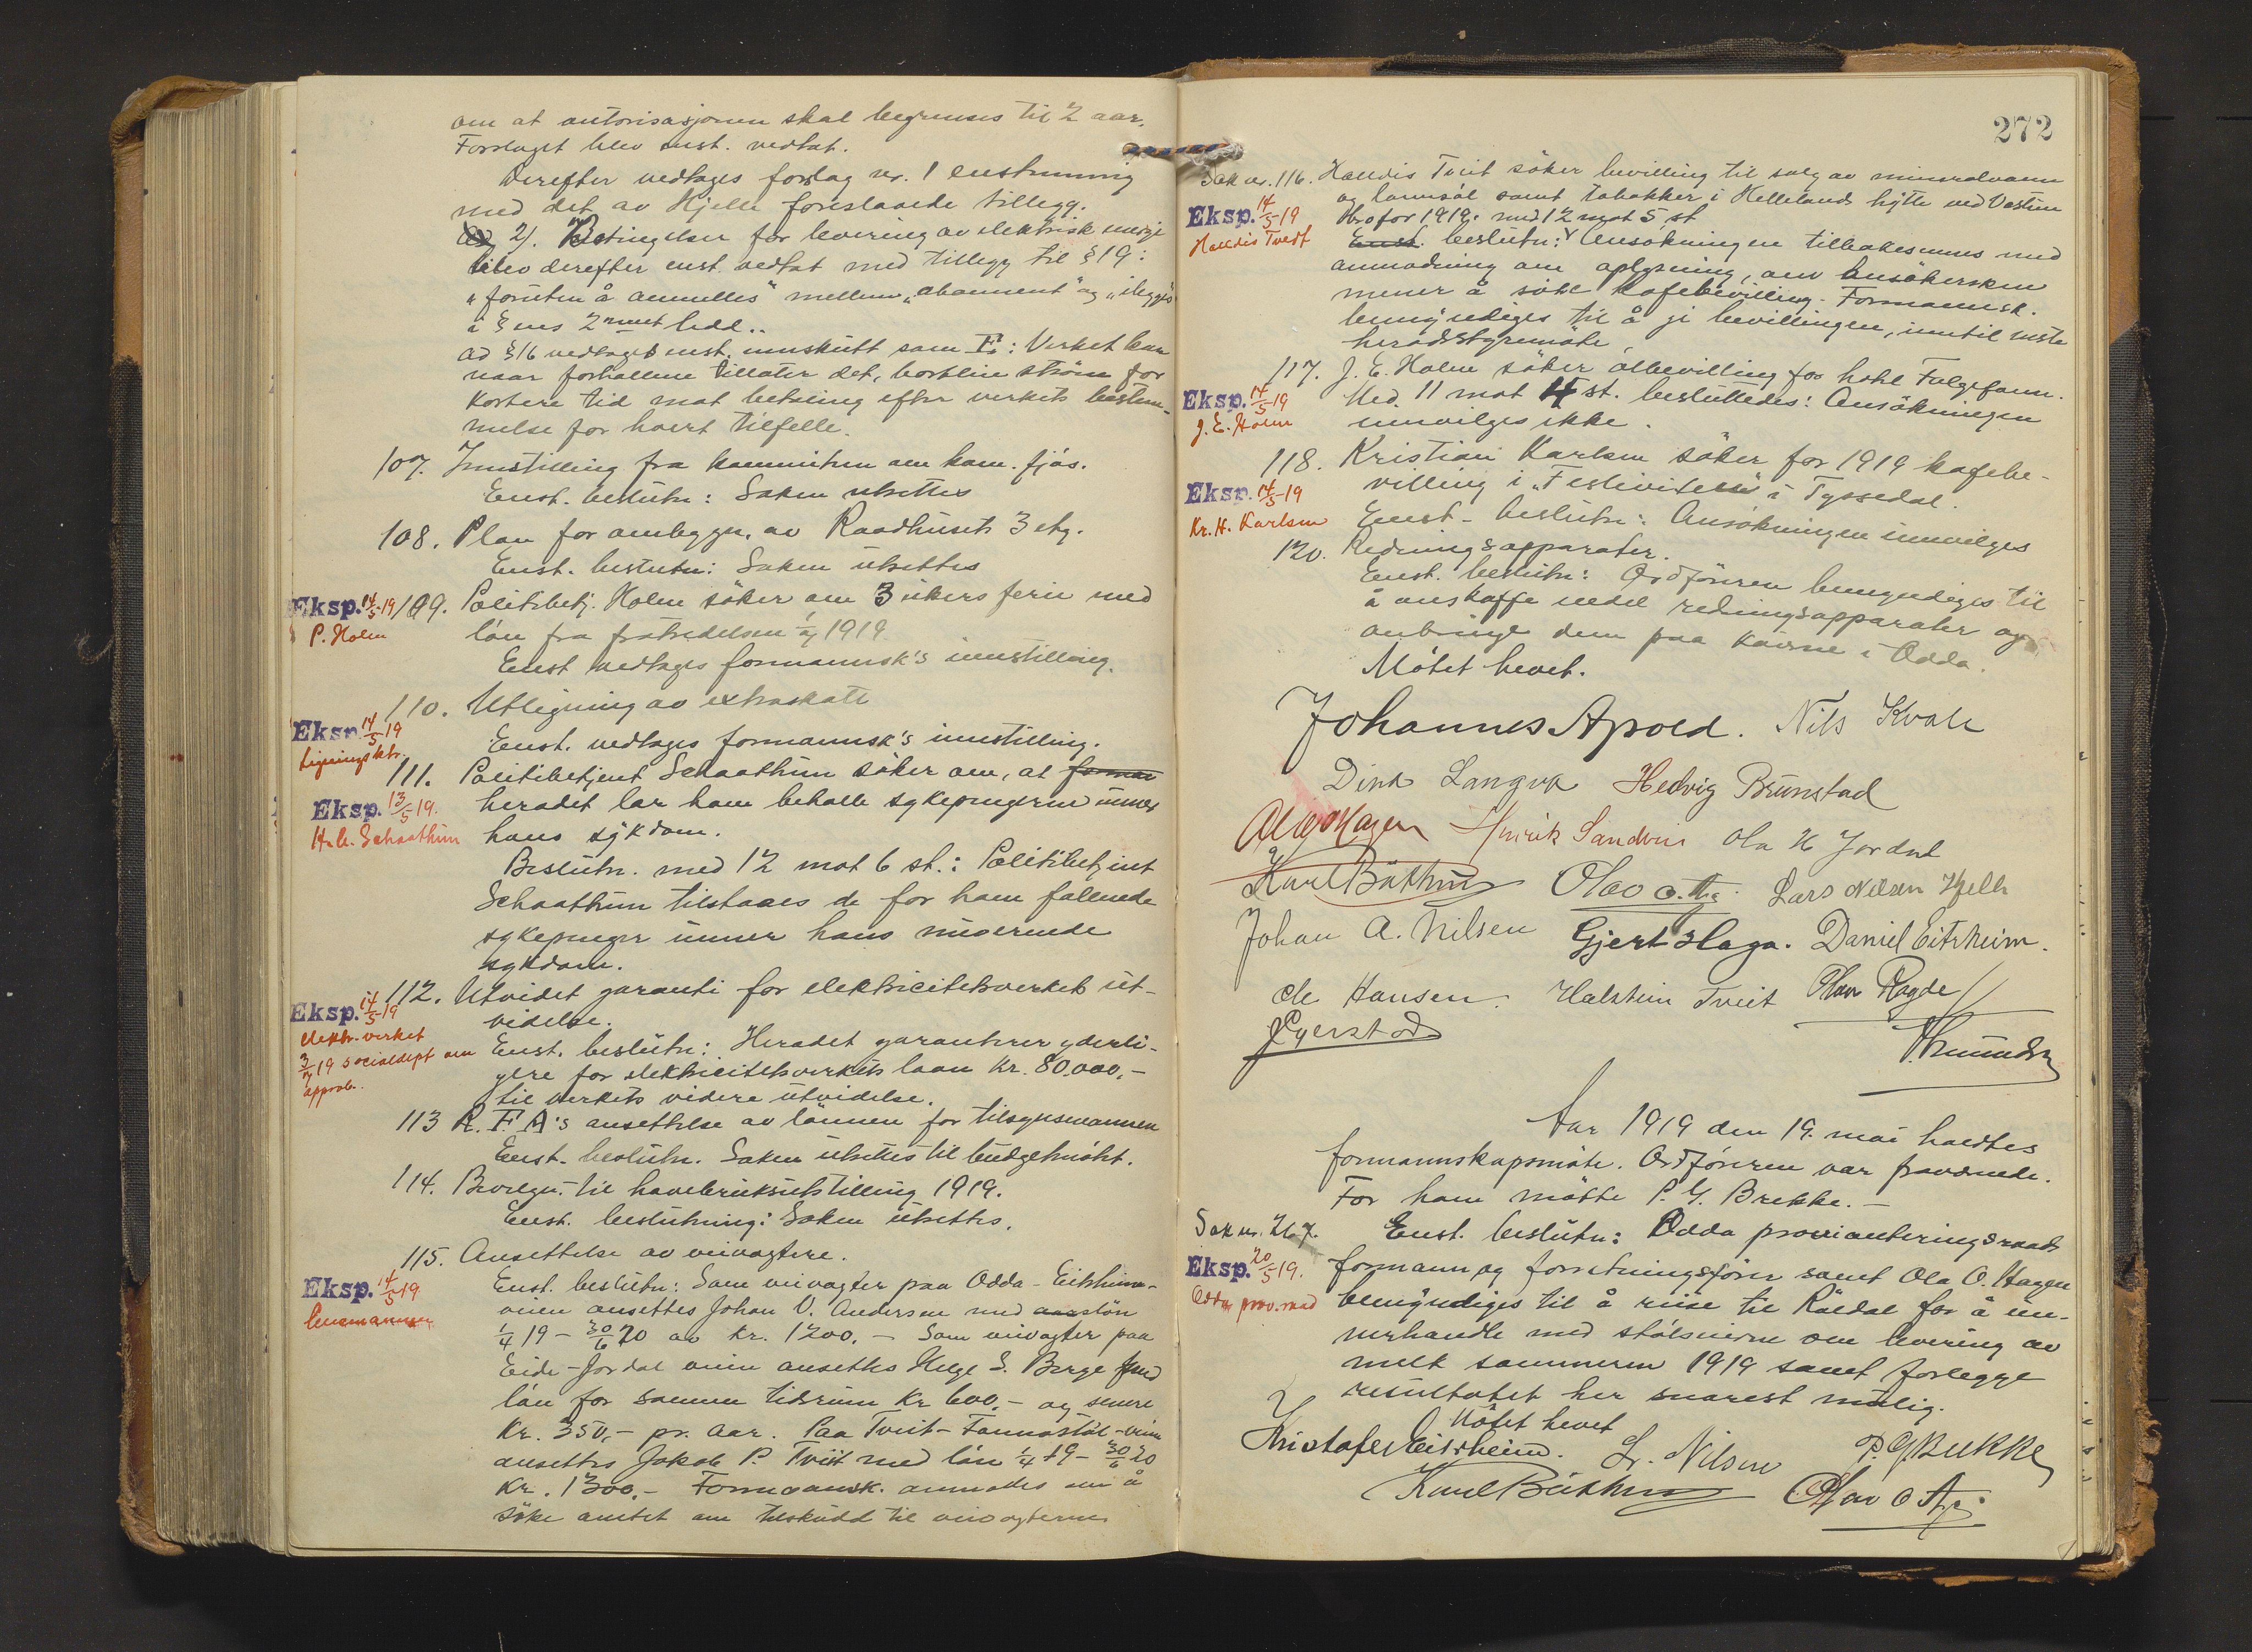 om at autorisasjonen skal begrenses til 2 aar.
Forslaget blev enst. vedtat.
Derefter vedtages forslag nr. 1 enstemmig
med det av Hjelle foreslaaede tillegg.
2). Betingelser for levering av elektrisk energi
blev derefter enst. vedtat med tillegg til § 19:
"foruten å anmelles" mellem "abonnent" og "ilegges"
i §ens 2net ledd..
ad § 16 vedtages enst. innskutt som F.: Verket kan
naar forhallene tillater det, bortleie strøm for
kortere tid mot betaling efter verkets bestem-
melse for hvert tilfelle.
107. Innstilling fra kommiteen om kom. fjøs.
Enst. beslutn: Saken utsettes
108. Plan for ombyggn. av Raadhusets 3 etg.
Enst. beslutn: Saken utsettes
Eksp. 14/5-19 109. Politibetj. Holm søker om 3 ukers ferie med
P. Holm
løn fra fratredelsen 1/7 1919.
Enst vedtages formannsk's innstilling.
110. Utligning av extraskatt
Eksp. 14/5 19
Ligningsktr.
Enst. vedtages formannsk's innstilling.
111. Politibetjent Schaathun søker om, at forman
Eksp. 13/5-19.
heradet lar ham beholle sykepengene under
Schaathun
hans sykdom.
Beslutn. med 12 mot 6 st.: Politibetjent
Schaathun tilstaaes de for ham fallende
sykepenger unner hans nuværende
sykdom.
112. Utvidet garanti for elektricitetsverkets ut-
Eksp. 14/5-19
videlse.
elektr. verket
3/7 19 Socialdept om
approb..
Enst. beslutn: Heradet garanterer yderli-
gere for elektricitetsverkets laan Kr. 80.000,-
til verkets videre utvidelse.
113 R.F.A's ansettelse av lønnen for tilsynsmannen
Enst. beslutn. Saken utsettes til budgetmøtet.
114. Bevilgn. til havebruksutstilling 1919.
Enst. beslutning: Saken utsettes.
115. Ansettelse av veivogtere.
Eksp. 14/5-19
Lensmannen
Enst. beslutn: Som veivogter paa Odda-Eitrheims-
veien ansettes Johan O. Andersen med aarsløn
1/4 19 - 30/6 20 av kr. 1200,- Som veivogter paa
Eide-Jordal veien ansettes Helge S. Berge med
løn for samme tidsrum kr 600,- og senere
Kr. 350,- pr. aar. Paa Tveit-Fannastøl-veien
ansettes Jakob P. Tveit med løn 1/4 19 - 30/6 20
Kr. 1300,- Formannsk. anmodes om å
søke amtet om tilskudd til veivogterne
272
Sak nr. 116. Halldis Tveit søker bevilling til salg av mineralvann
og tannsøl samt tobakker i Hellelands hytte ved Vasstun
Eksp. 14/5-19
Halldis Tveit
Hbro for 1919. med 12 mot 5 st
Enst. beslutn: Ansøkningen tilbakesennes med
anmodning om oplysning, om Ansøkersken
mener å søke kafebevilling. Formannsk.
bemyndiges til å gi bevillingen, inntil neste
heradsstyremøte
117. J. E. Holm søker ølbevilling for hotel Folgefonn.
Eksp. 14/5-19
J. E. Holm
Med 11 mot 4 st. besluttedes: Ansøkningen
innvilges ikke.
118. Kristian Karlsen søker for 1919 kafebe-
Eksp. 14/5-19
Kr. H. Karlsen
villing i "Festiviteten" i Tyssedal.
Enst. beslutn: Ansøkningen innvilges
120. Redningsapparater.
Enst. beslutn: Ordføreren bemyndiges til
å anskaffe endel redningsapparater og
anbringe dem paa kaiene i Odda.
Møtet hevet.
Johannes Apold. Nils Kvale
Dina Langva Hedvig Brunstad
Hagen Henrik Sandvin Ola H Jordal
Karl Bøthun Olav O. Lars Nilsen Hjelle
Johan A. Nilsen Gjert Haga. Daniel Eitrheim.
Chr Hansen. Halstein Tveit Olav Ragde
Gjerstad
Aar 1919 den 19. mai holdtes
formannskapsmøte. Ordføreren var fraværende.
For ham møtte P. G. Brekke.-
Sak nr. 267.
Enst. beslutn: Odda provianteringsraads
Eksp. 20/5-19.
Odda prov.raad
formann og forretningsfører samt Ola O. Hagen
bemyndiges til å reise til Røldal for å un-
nerhandle med stølseierne om levering av
melk sommeren 1919 samt forlegge
resultatet her snarest mulig.
Møtet hevet
Kristofer Eitrheim. L. Nilsen P. G. Brekke
Karl Bøthun Olav O